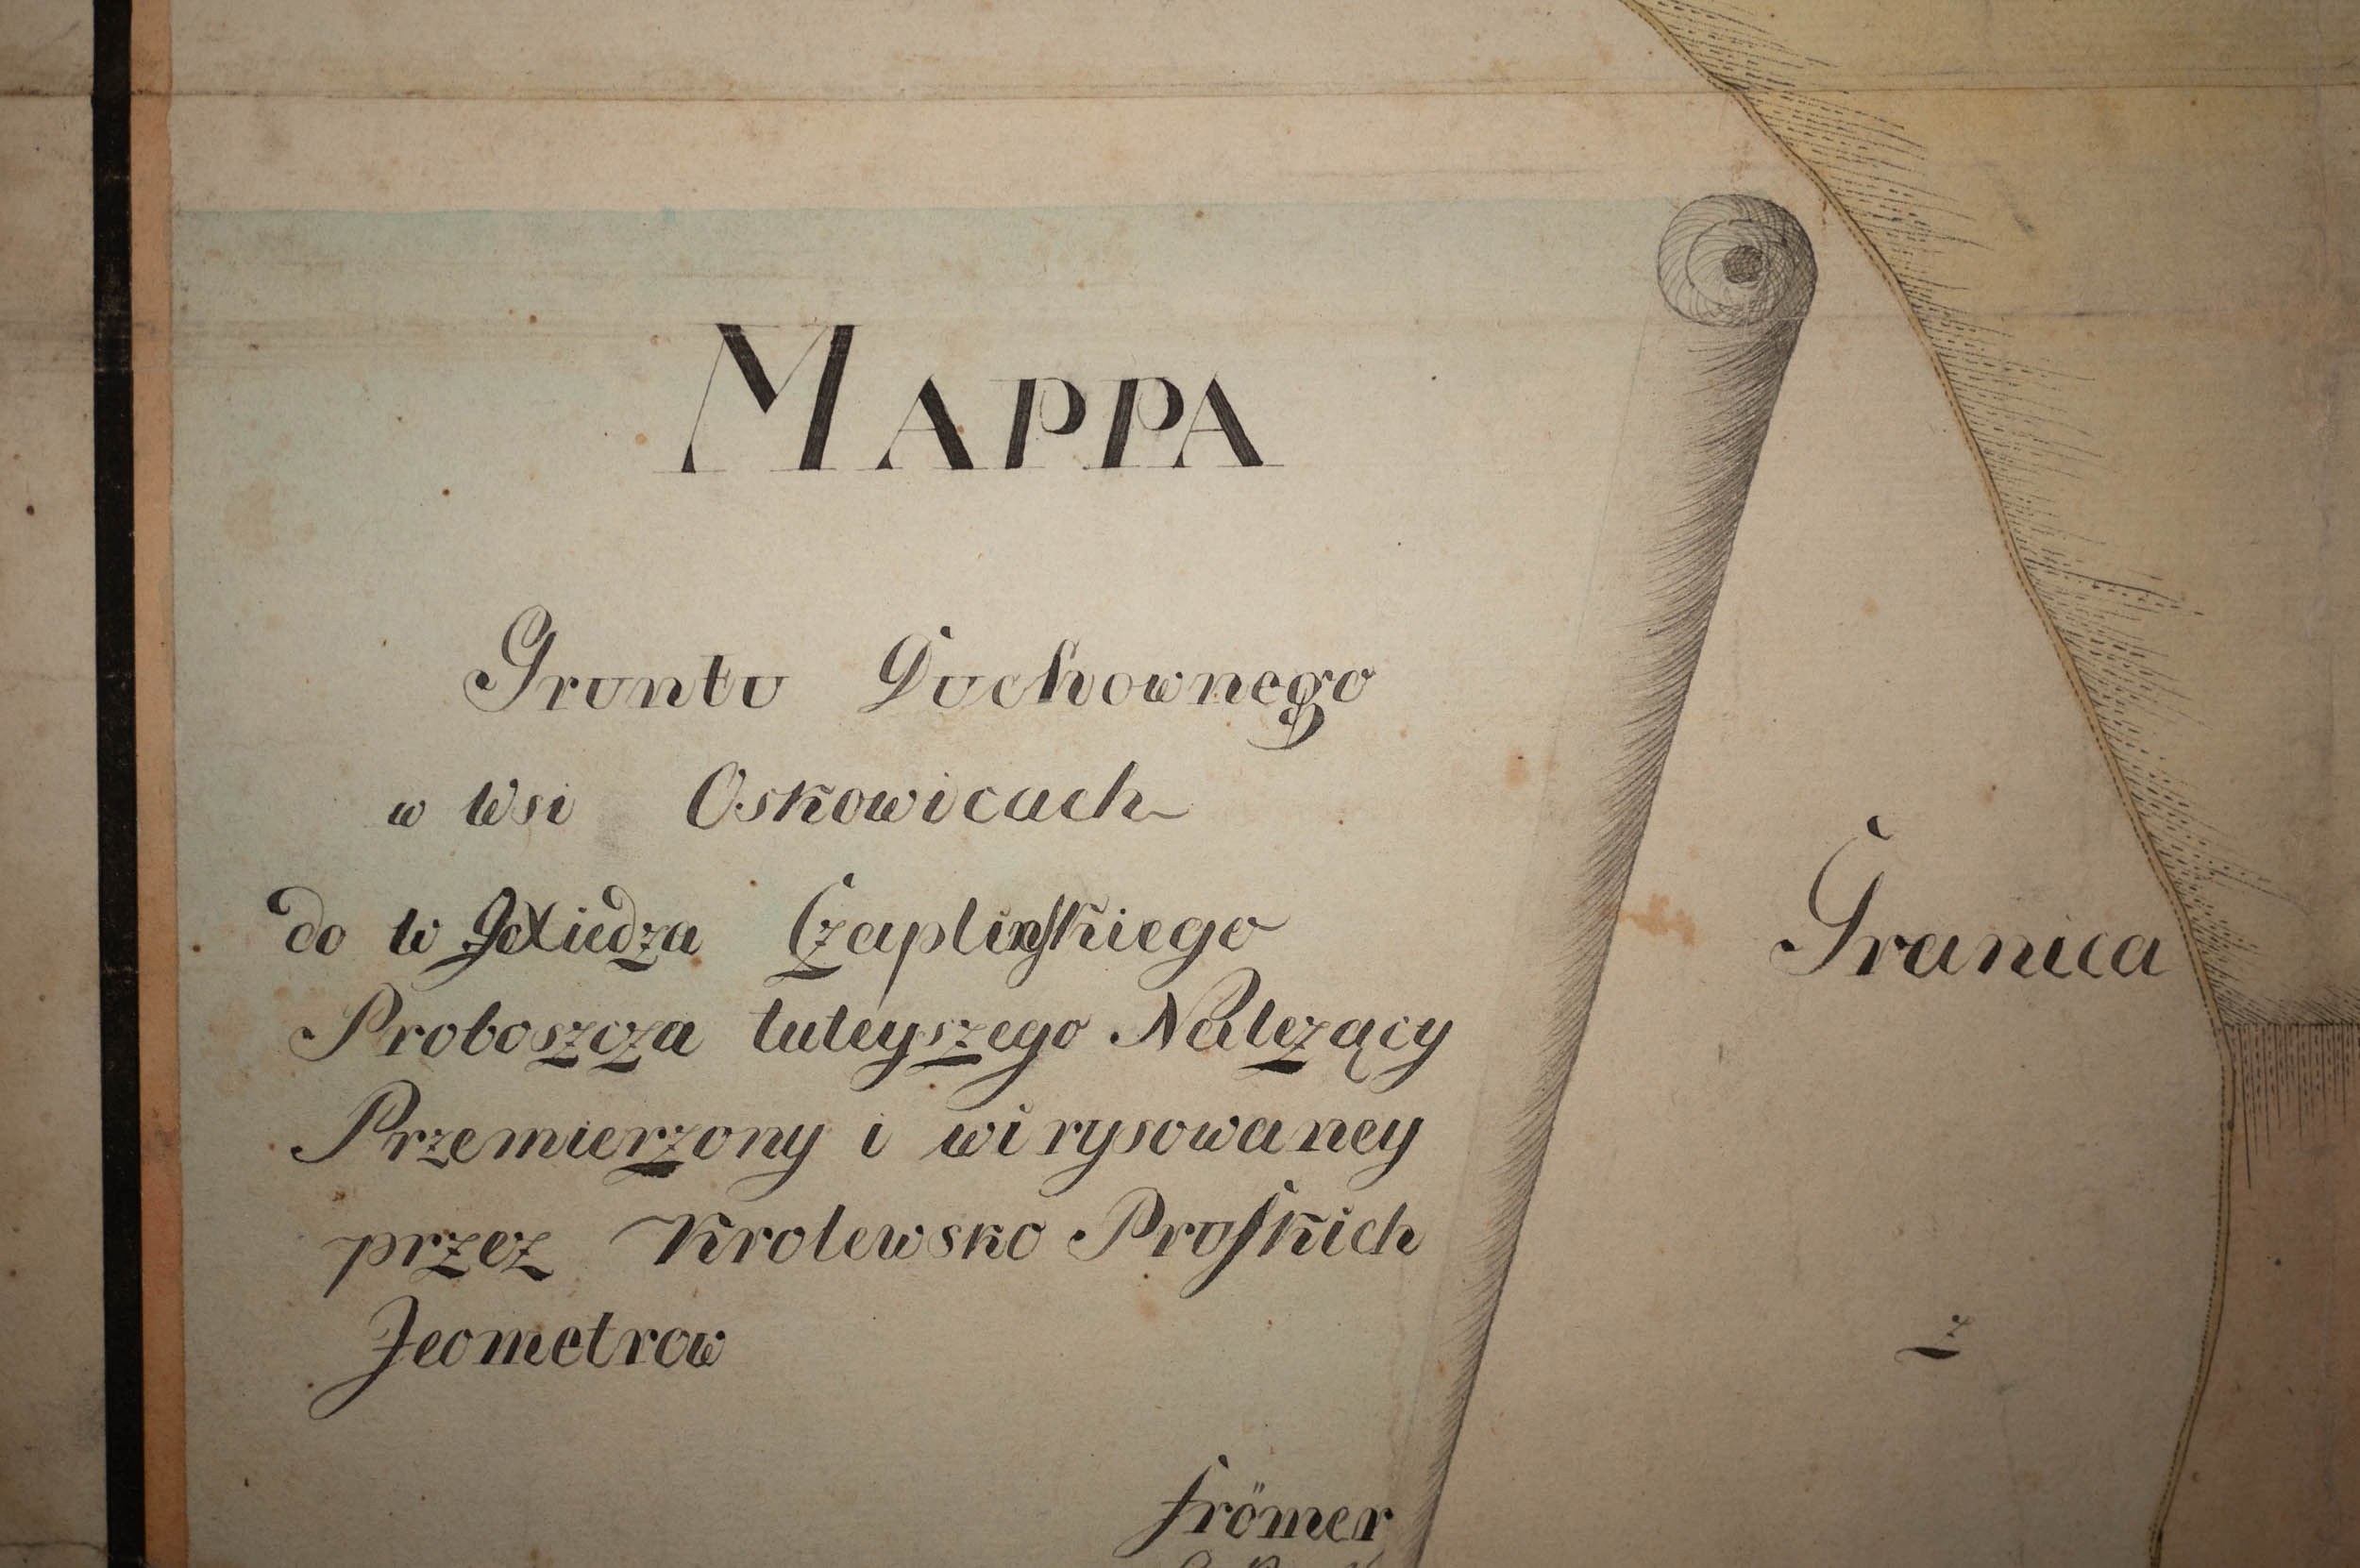 MAPPA
Gruntu Duchownego
w Wsi Oskowicach
do W Xiedza Czaplinskiego
Proboszcza tuteyszego Nalezący
Przemierzony i wirysowaney
przez Krolewsko Pruskich
Jeometrow
Frömer
Granica
z